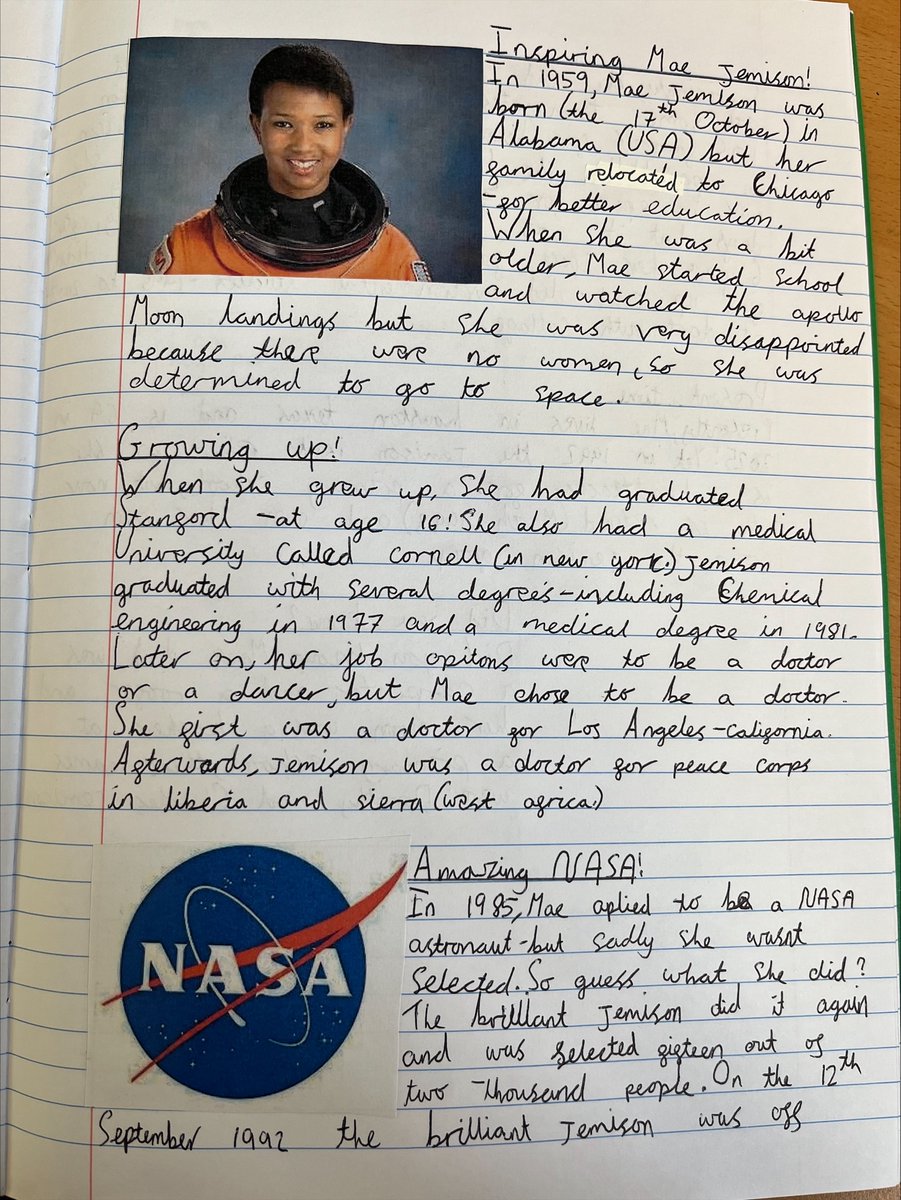 Inspiring Mae Jemison!
In 1959, Mae Jemison was
born (the 17th October) in
Alabama (USA) but her
family relocated to Chicago
-for better education.
When she was a bit
older, Mae started school
and watched the apollo
Moon landings but she was very disappointed
because there were no women, so she was
determined to go to space.
Growing up!
When she grew up, she had graduated
Stanford -at age 16! She also had a medical
University called cornell (in new york.) Jemison
graduated with several degree's-including Chemical
engineering in 1977 and a medical degree in 1981.
Later on, her job opitons were to be a doctor
or a dancer, but Mae chose to be a doctor.
She first was a doctor for Los Angeles-california.
Afterwards, Jemison was a doctor for peace corps
in liberia and sierra (west africa.)
NASA
Amazing NASA!
In 1985, Mae aplied to be a NASA
astronaut-but sadly she wasnt
selected. So guess what she did?
The brilliant Jemison did it again
and was selected fifteen out of
two thousand people. On the 12th
September 1992 the brilliant Jemison was off